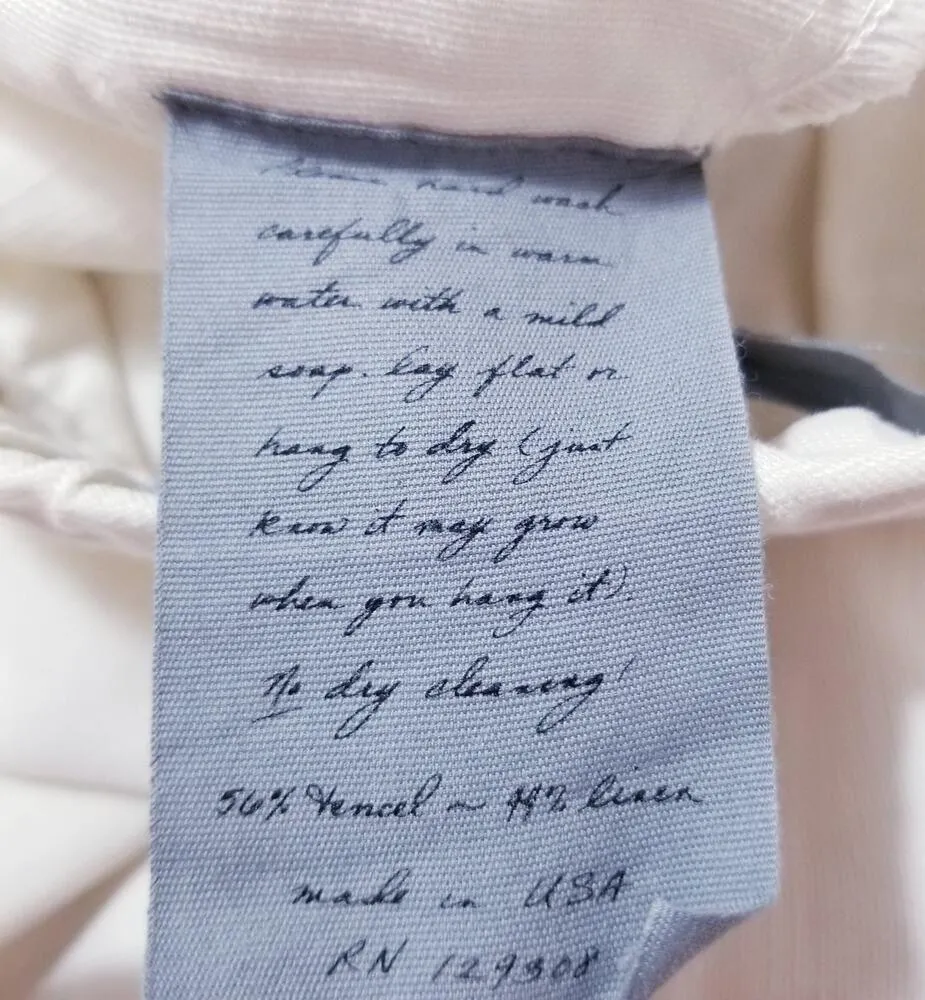 Please hand wash
carefully in warm
water with a mild
soap. lay flat or
hang to dry (just
know it may grow
when you hang it).
No dry cleaning!
56% Tencel ~ 44% linen
made in USA
RN 129308